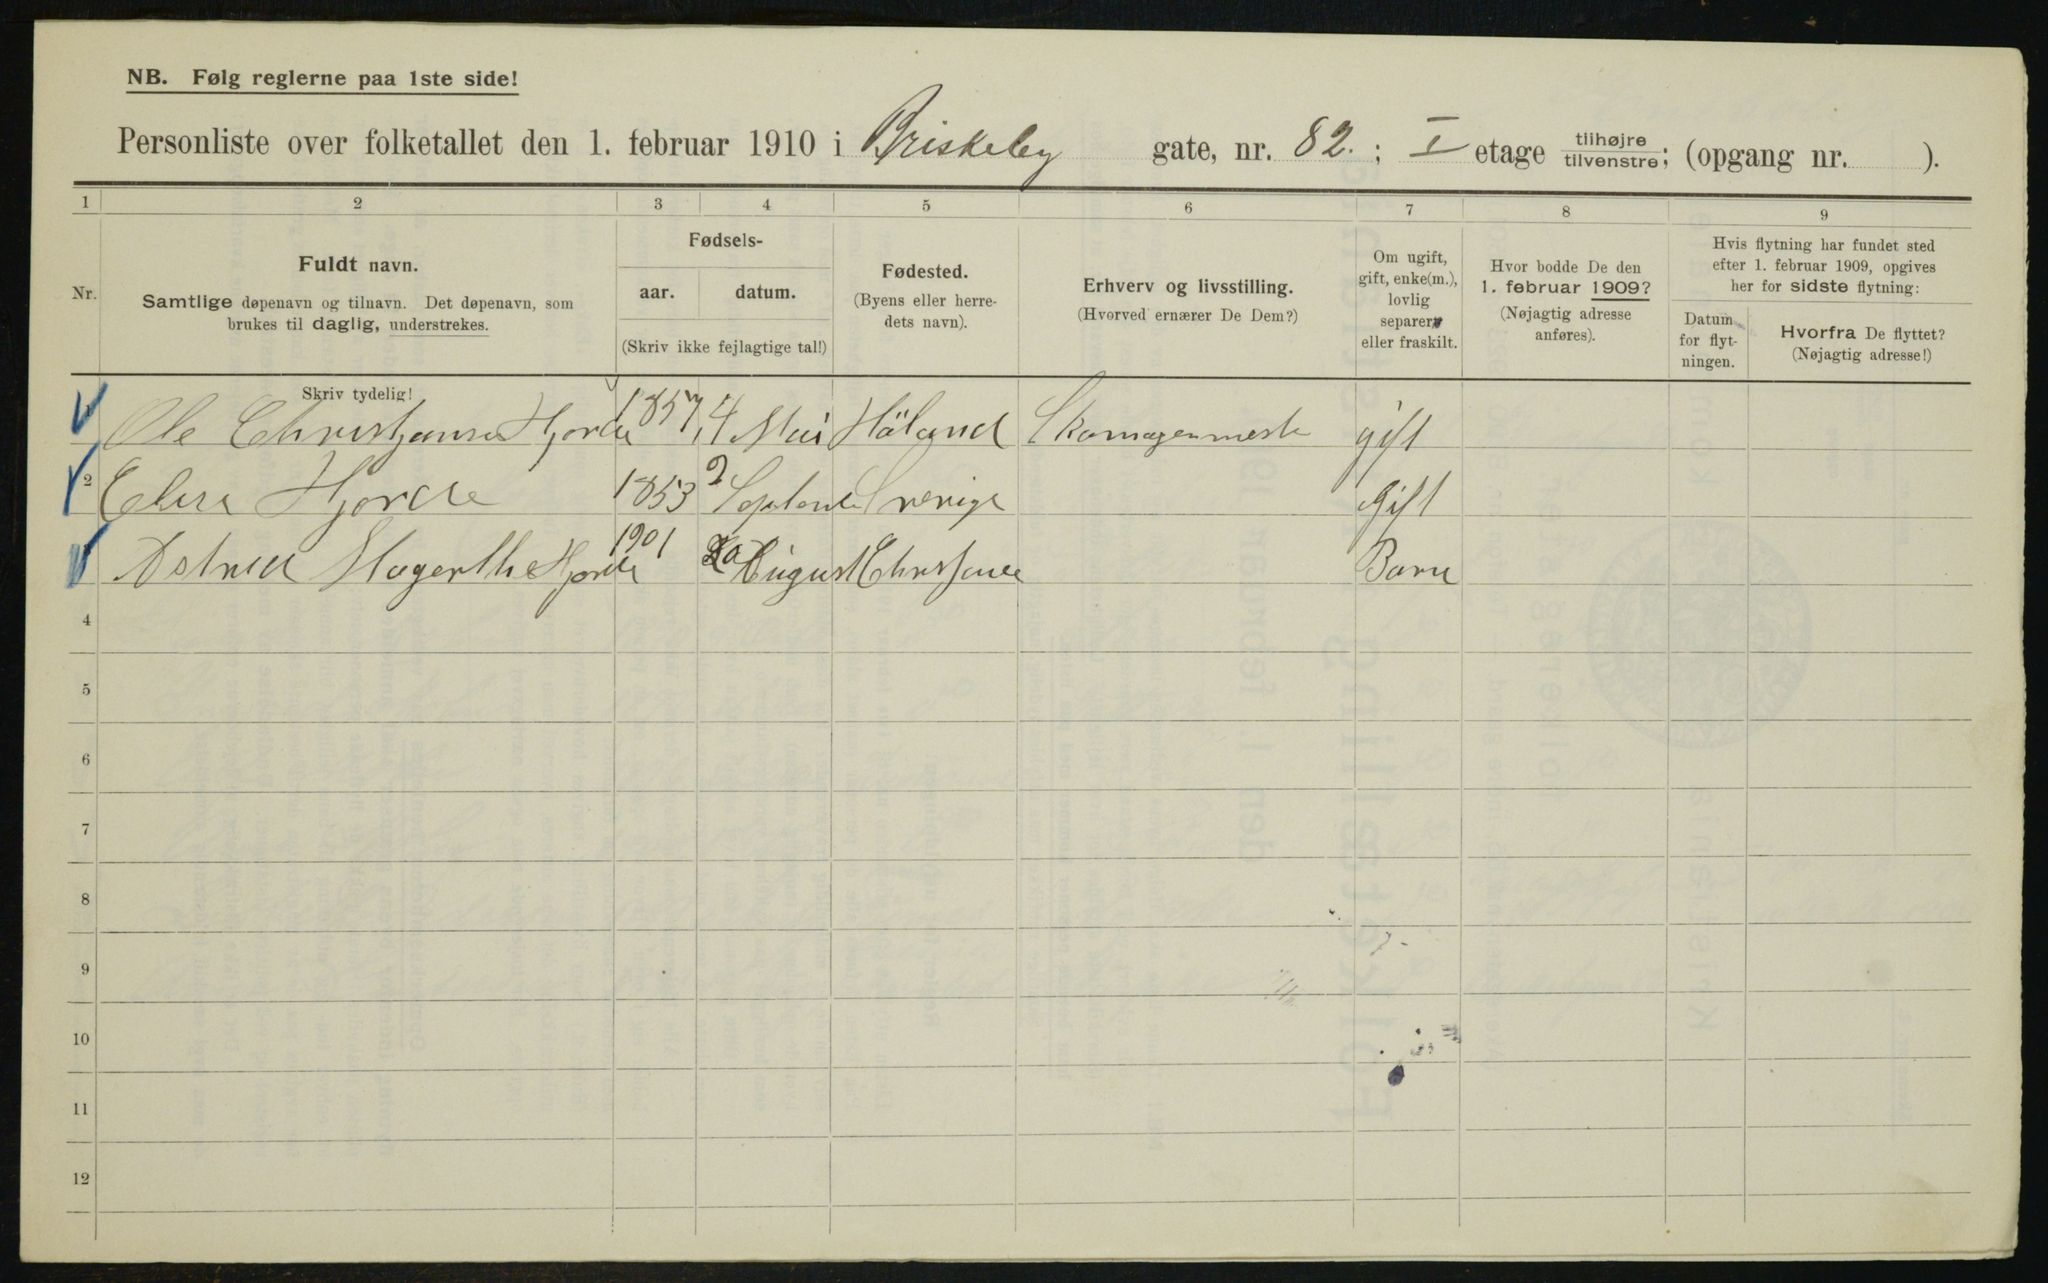 NB. Følg reglerne paa 1ste side!
Personliste over folketallet den 1. februar 1910 i Briskeby gate, nr. 82. ; I etage tilhøjre tilvenstre; (opgang nr. ).
1 2 3 4 5 6 7 8 9
Nr.
Fuldt navn.
Samtlige døpenavn og tilnavn. Det døpenavn, som
brukes til daglig, understrekes.
Fødsels-
aar. datum.
(Skriv ikke fejlagtige tal!)
Fødested.
(Byens eller herre-
dets navn).
Erhverv og livsstilling.
(Hvorved ernærer De Dem?)
Om ugift,
gift, enke(m.),
lovlig
separert
eller fraskilt.
Hvor bodde De den
1. februar 1909?
(Nøjagtig adresse
anføres).
Hvis flytning har fundet sted
efter 1. februar 1909, opgives
her for sidste flytning:
Datum
for flyt-
ningen.
Hvorfra De flyttet?
(Nøjagtig adresse!)
Skriv tydelig!
1 Ole Hjorde 1857 4 Mai Höland gift
2 Hjorde 1853 2 Gift
Hjorde 1901 August Barn
4
5
6
7
8
9
10
11
12